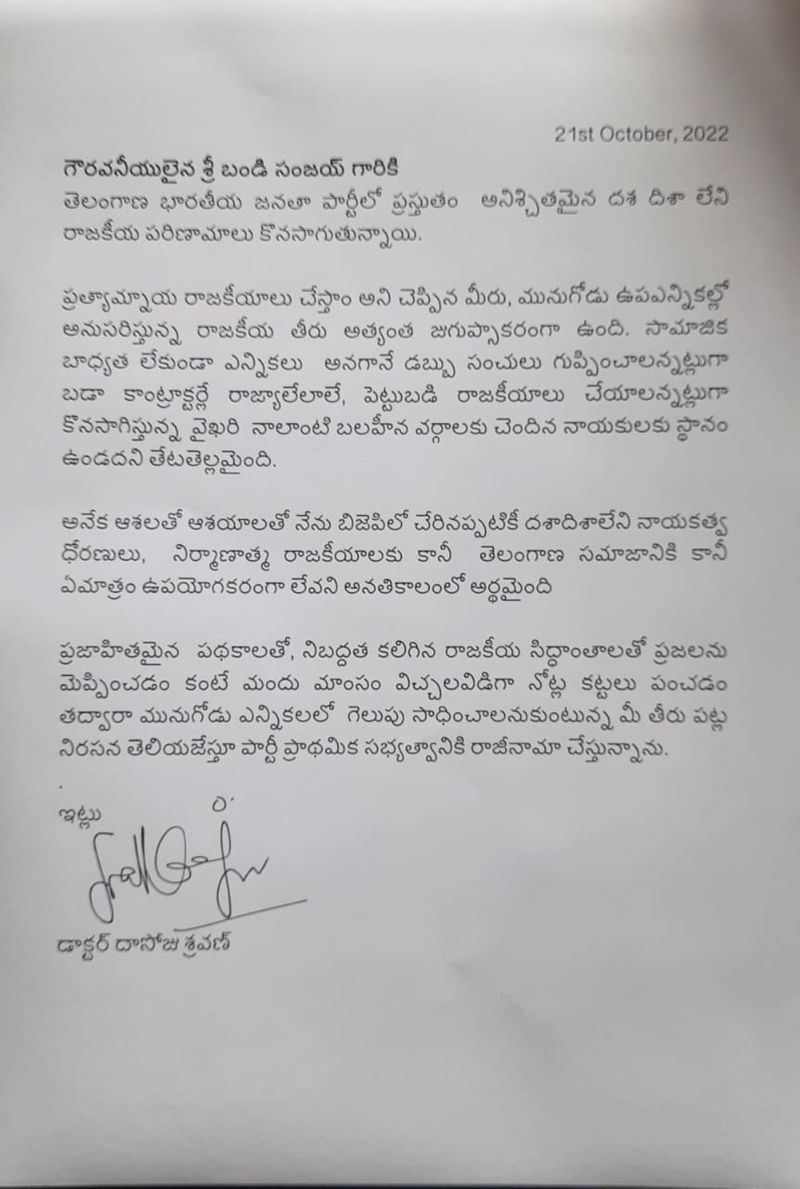 21st October, 2022
గౌరవనీయులైన శ్రీ బండి సంజయ్ గారికి
తెలంగాణ భారతీయ జనతా పార్టీలో ప్రస్తుతం అనిశ్చితమైన దశ దిశా లేని
రాజకీయ పరిణామాలు కొనసాగుతున్నాయి.
ప్రత్యామ్నాయ రాజకీయాలు చేస్తాం అని చెప్పిన మీరు, మునుగోడు ఉపఎన్నికల్లో
అనుసరిస్తున్న రాజకీయ తీరు అత్యంత జుగుప్సాకరంగా ఉంది. సామాజిక
బాధ్యత లేకుండా ఎన్నికలు అనగానే డబ్బు సంచులు గుప్పించాలన్నట్లుగా
బడా కాంట్రాక్టర్లే రాజ్యాలేలాలే, పెట్టుబడి రాజకీయాలు చేయాలన్నట్లుగా
కొనసాగిస్తున్న వైఖరి నాలాంటి బలహీన వర్గాలకు చెందిన నాయకులకు స్థానం
ఉండదని తేటతెల్లమైంది.
అనేక ఆశలతో ఆశయాలతో నేను బిజెపిలో చేరినప్పటికీ దశాదిశాలేని నాయకత్వ
ధోరణులు, నిర్మాణాత్మ రాజకీయాలకు కానీ తెలంగాణ సమాజానికి కానీ
ఏమాత్రం ఉపయోగకరంగా లేవని అనతికాలంలో అర్థమైంది
ప్రజాహితమైన పథకాలతో, నిబద్దత కలిగిన రాజకీయ సిద్ధాంతాలతో ప్రజలను
మెప్పించడం కంటే మందు మాంసం విచ్చలవిడిగా నోట్ల కట్టలు పంచడం
తద్వారా మునుగోడు ఎన్నికలలో గెలుపు సాధించాలనుకుంటున్న మీ తీరు పట్ల
నిరసన తెలియజేస్తూ పార్టీ ప్రాథమిక సభ్యత్వానికి రాజీనామా చేస్తున్నాను.
.
ఇట్లు
డాక్టర్ దాసోజు శ్రవణ్